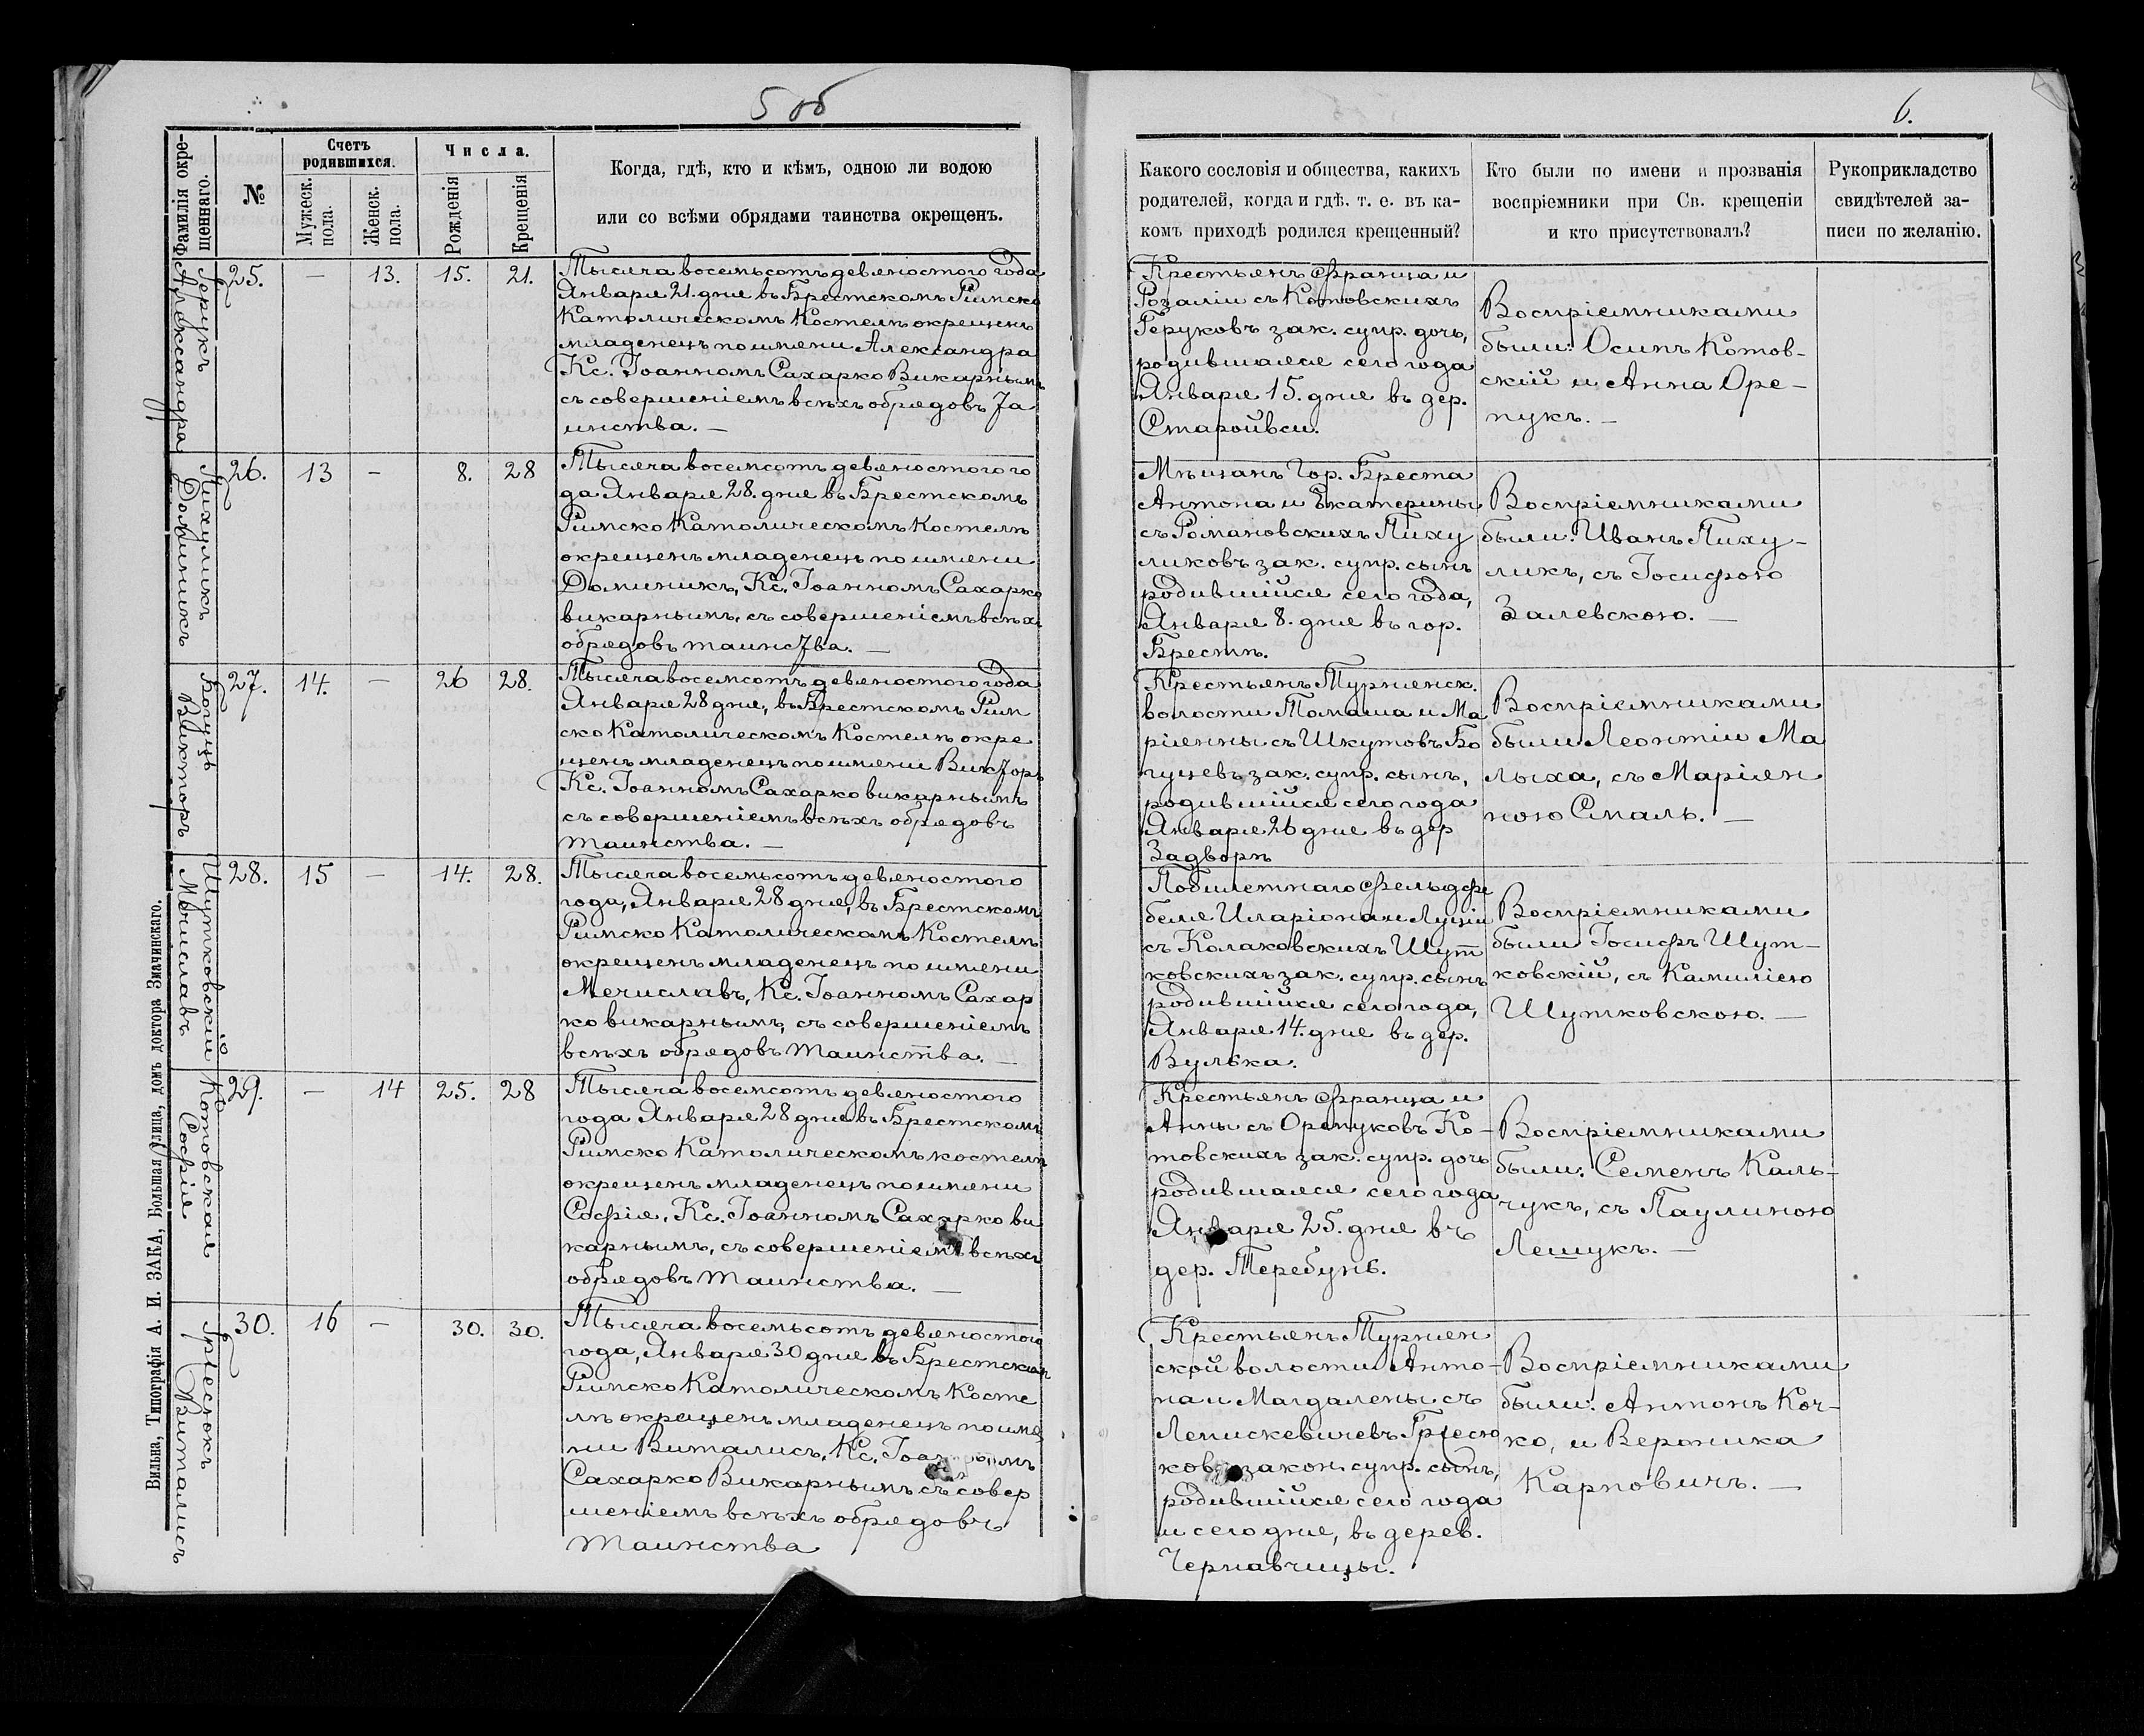 5 об
6.
Фамилія окре-
щеннаго.
№
Счетъ
родившихся.
Мужеск.
пола.
Женск.
пола.
Числа.
Рожденія
Крещенія
Когда, гдѣ, кто и кѣмъ, одною ли водою
или со всѣми обрядами таинства окрещенъ.
Какого сословія и общества, какихъ
родителей, когда и гдѣ. т. е. въ ка-
комъ приходѣ родился крещенный?
Кто были по имени и прозванія
воспріемники при Св. крещеніи
и кто присутствовалъ?
Рукоприкладство
свидѣтелей за-
писи по желанію.
Герукъ
Александра
25.
—
13.
15.
21.
Тысяча восемьсотъ девяностого года
Января 21. дня въ Брестскомъ Римско
Католическомъ Костелѣ окрещенъ
младенецъ по имени Александра
Кс. Іоанномъ Сахарко Викарнымъ
съ совершеніемъ всѣхъ обрядовъ Та
инства. —
Крестьянъ Франца и
Розаліи съ Котовскихъ
Геруковъ зак. супр. дочь,
родившаяся сего года
Января 15. дня въ дер.
Старойвси.
Воспріемниками
были: Осипъ Котов-
скій и Анна Оре-
пукъ. —
Пихуликъ
Доминикъ
26.
13
—
8.
28
Тысяча восемсотъ девяностого го
да Января 28. дня въ Брестскомъ
Римско Католическомъ Костелѣ
окрещенъ младенецъ по имени
Доминикъ, Кс. Іоанномъ Сахарко
викарнымъ, съ совершеніемъ всѣхъ
обрядовъ таинства. —
Мѣщанъ Гор. Бреста
Антона и Екатерины
съ Романовскихъ Пиху
ликовъ зак. супр. сынъ
родившійся сего года,
Января 8. дня въ гор.
Брестѣ.
Воспріемниками
были: Иванъ Пиху-
ликъ, съ Іосифою
Залевскою. —
Богуцъ
Викторъ
27.
14.
—
26
28.
Тысяча восемсотъ девяностого года
Января 28 дня, въ Брестскомъ Рим
ско Католическомъ Костелѣ окре
щенъ младенецъ по имени Викторъ
Кс. Іоанномъ Сахарко викарнымъ
съ совершеніемъ всѣхъ обрядовъ
Таинства. —
Крестьянъ Турненск.
волости Томаша и Ма
ріянны съ Шкутовъ Бо
гуцевъ зак. супр. сынъ,
родившійся сего года
Января 26 дня въ дер
Задворѣ
Воспріемниками
были Леонтіи Ма
лыха, съ Маріян
ною Смаль. —
Шутковскій
Мечиславъ
28.
15
—
14.
28.
Тысяча восемьсотъ девяностого
года, Января 28 дня, въ Брестскомъ
Римско Католическомъ Костелѣ
окрещенъ младенецъ по имени
Мечиславъ, Кс. Іоанномъ Сахар
ко викарнымъ, съ совершеніемъ
всѣхъ обрядовъ Таинства. —
Побилетнаго Фельдфе
беля Иларіона и Луціи
съ Колаковскихъ Шут
ковскихъ зак. супр. сынъ
родившійся сего года,
Января 14. дня въ дер.
Вулька.
Воспріемниками
были Іосифъ Шут-
ковскій, съ Камиліею
Шутковскою. —
Котовская
Софія
29.
—
14
25.
28
Тысяча восемсотъ девяностого
года Января 28 дня въ Брестскомъ
Римско Католическомъ костелѣ
окрещенъ младенецъ по имени
Софія, Кс. Іоанномъ Сахарко ви
карнымъ, съ совершеніемъ всѣхъ
обрядовъ Таинства. —
Крестьянъ Франца и
Анны съ Орепуковъ Ко-
товскихъ зак. супр. дочь
родившаяся сего года
Января 25. дня въ
дер. Теребунь.
Воспріемниками
были: Семенъ Каль-
чукъ, съ Паулиною
Лешукъ. —
Гріесюкъ
Виталисъ
30.
16
—
30.
30.
Тысяча восемьсотъ девяностого
года, Января 30 дня въ Брестскомъ
Римско Католическомъ Косте
лѣ окрещенъ младенецъ по име
ни Виталисъ, Кс. Іоанномъ
Сахарко Викарнымъ съ совер
шеніемъ всѣхъ обрядовъ
Таинства
Крестьянъ Турнен
ской волости Анто-
на и Магдалены съ
Лепискевичевъ Гріесю
ковъ закон. супр. сынъ,
родившійся сего года
и сего дня, въ дерев.
Чернавчицы.
Воспріемниками
были: Антонъ Коч-
ко, и Вероника
Карповичъ. —
Вильна, Типографія А. И. ЗАКА, Большая улица, домъ доктора Змачинскаго.